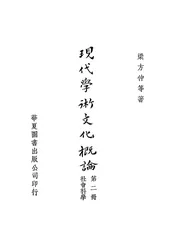 梁方仲等著
現代學術文化概論
第二冊
社會科學
華夏圖書出版公司印行